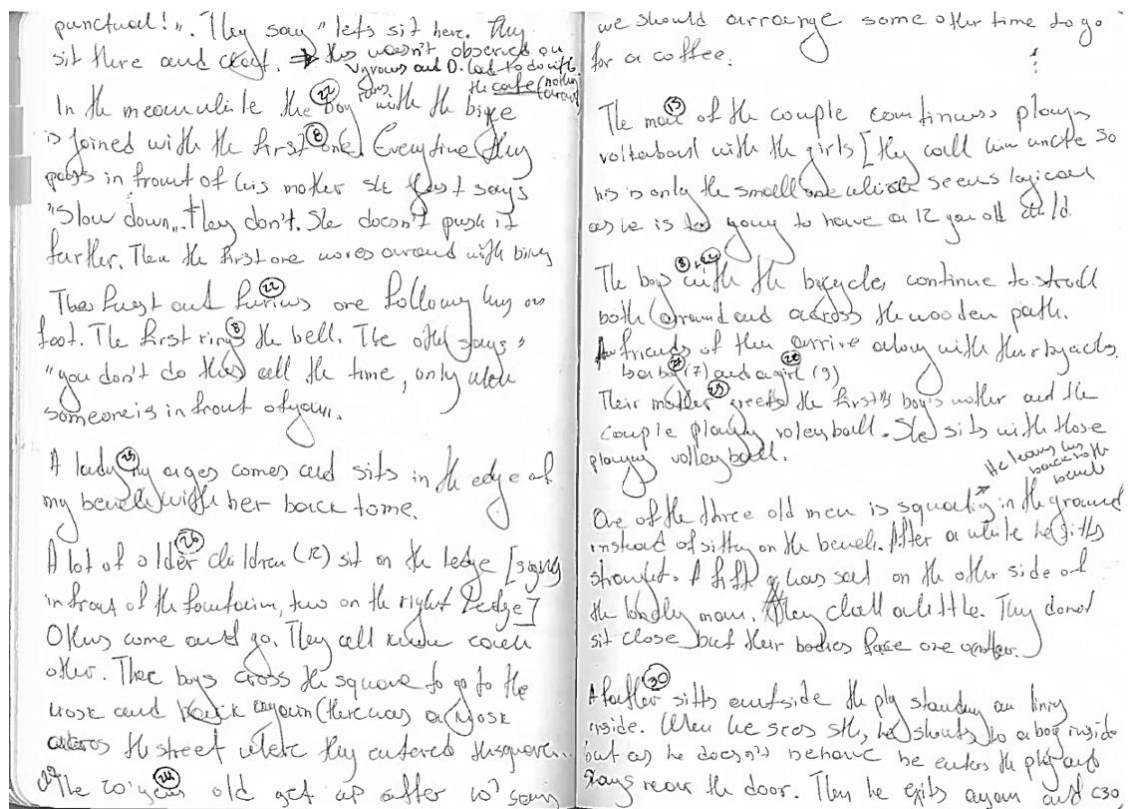 punctual!". They say "lets sit here. They
sit there and chat. → this wasn't observed on
and D. had to do with
the cafe (nothing
around)
In the meanwhile the boy (22) with the bike
is joined with the first (8) one. Everytime they
pass in front of his mother she just says
"Slow down". They don't. She doesn't push it
further. Then the first one moves around with
The fast and furious (22) one following him on
foot. The first rings (8) the bell. The other says "
"you don't do this all the time, only when
someone is in front of you".
A lady (25) my ages comes and sits in the edge of
my bench with her back to me.
A lot of older (26) children (12) sit on the ledge [
in front of the fountain, two on the right ledge]
Others come and go. They all know each
other. Three boys cross the square to go to the
kiosk and back again (there was a kiosk
across the street where they entered the square...
The 20 year (24) old get up after 10'
we should arrange some other time to go
for a coffee.
The man (15) of the couple continues playing
with the girls [they call him uncle so
his is only the small one which seems logical
as he is too young to have a 12 year old child.
The boys (8) with the bicycles continue to stroll
both around and across the wooden path.
friends of them arrive along with their bycicles.
a boy (7) and a girl (9) (28)
Their mother (29) greets the first boy's mother and the
couple playing voleyball. She sits with those
playing volleyball.
He leans his
back on the
bench
One of the three old men is squatting in the ground
instead of sitting on the bench. After a while he sitts
straight. A fifth has sat on the other side of
the lonely man. They chat a little. They do not
sit close but their bodies face one another.
A father (30) sitts outside the plg standing an
inside. When he sees sth, he shouts to a boy inside
but as he doesn't behave he enters the plg and
stays near the door. Then he exits again and (30